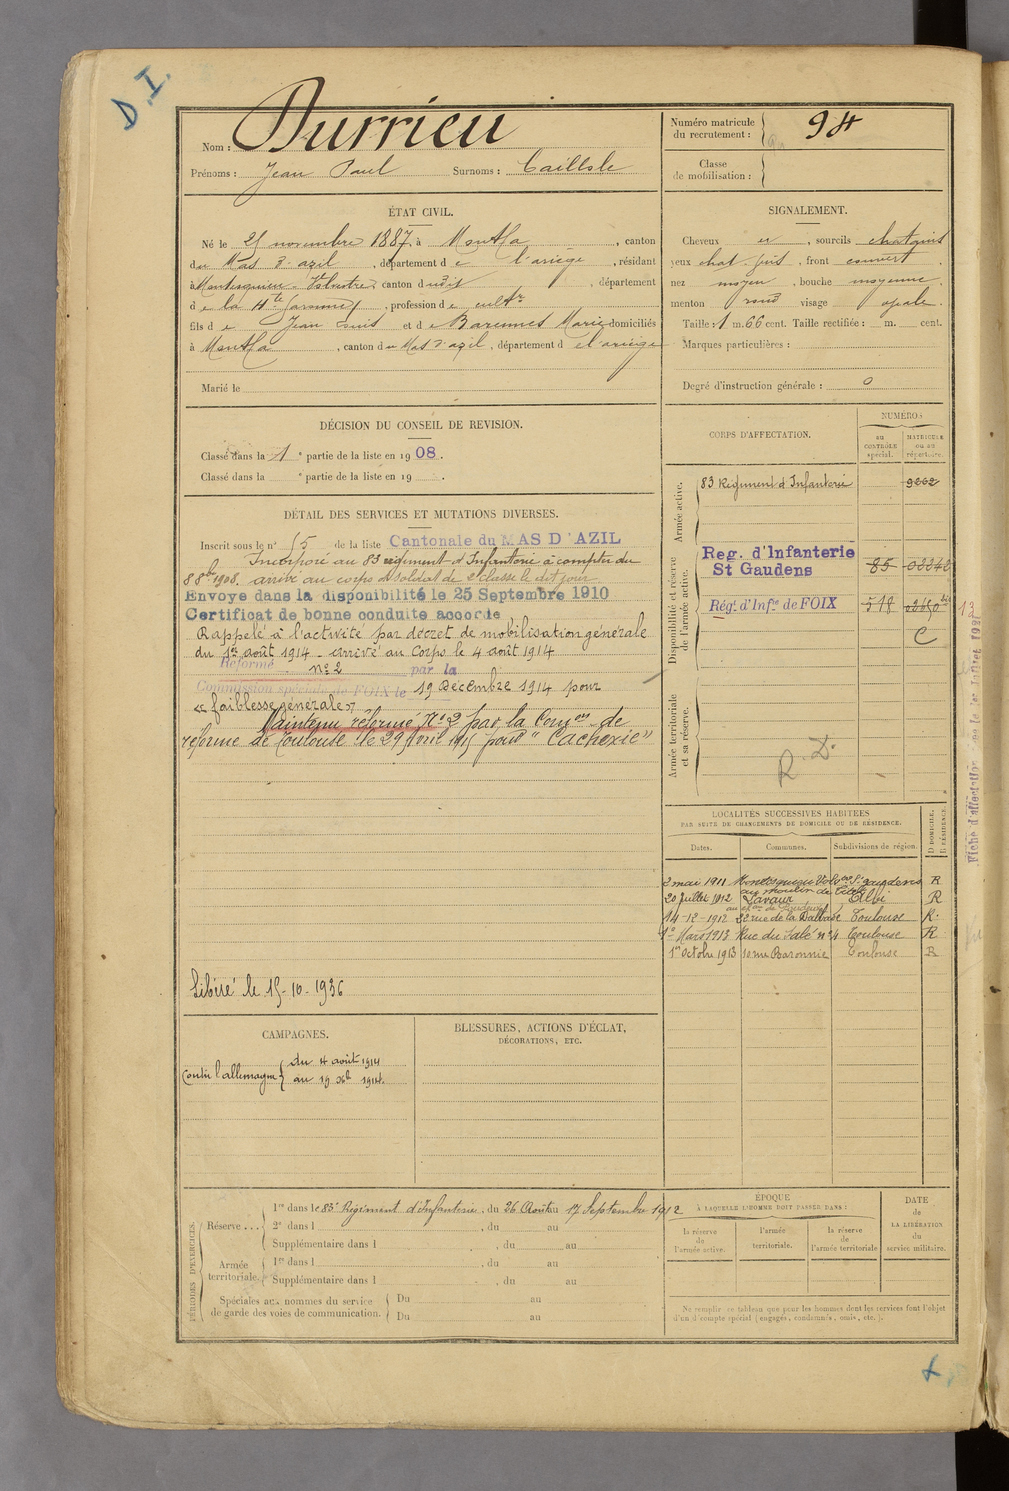 D. I.
Nom : Durrieu
Prénoms : Jean Paul Surnoms :
Numéro matricule
du recrutement : 94
Classe
de mobilisation :
ÉTAT CIVIL.
Né le 25 novembre 1887, à , canton
du Mas d'azil , département de l'ariège , résidant
à Montesquieu Volvestre, canton dudit , département
de la Hte Garonne , profession de cultr
fils de Jean et de Marie domiciliés
à , canton du Mas d'azil , département de l'ariège
Marié le
SIGNALEMENT.
Cheveux , sourcils chatains
yeux , front couvert ,
nez moyen , bouche moyenne ,
menton rond visage ovale .
Taille : 1 m. 66 cent. Taille rectifiée : m. cent.
Marques particulières :
Degré d'instruction générale : 0
DÉCISION DU CONSEIL DE REVISION.
Classé dans la 1 e partie de la liste en 19 08 .
Classé dans la e partie de la liste en 19 .
DÉTAIL DES SERVICES ET MUTATIONS DIVERSES.
Inscrit sous le n° 15 de la liste Cantonale du MAS D'AZIL
Incorporé au 83 régiment d'Infanterie à compter du
8 8bre 1908. arrivé au corps et soldat de 2e classe le dit jour
Envoye dans la disponibilité le 25 Septembre 1910
Certificat de bonne conduite accorde
Rappelé à l'activité par décret de mobilisation générale
du 1er août 1914 - arrivé au Corps le 4 août 1914
Réformé n° 2 par la
Commission spéciale de FOIX le 19 Décembre 1914 pour
« faiblesse générale »
Maintenu réformé N° 2 par la Comon de
réforme de Toulouse le 29 Avril 1915 pour "Cachexie"
Libéré le 15-10-1936
CORPS D'AFFECTATION.
NUMÉROS
AU CONTRÔLE spécial.
MATRICULE ou au répertoire.
Armée active.
83 Régiment d'Infanterie 9262
Disponibilité et réserve de l'armée active.
Reg. d'Infanterie
St Gaudens 85
Rég. d'Infie de FOIX 518
C
Armée territoriale et sa réserve.
R. D.
LOCALITÉS SUCCESSIVES HABITÉES
PAR SUITE DE CHANGEMENTS DE DOMICILE OU DE RÉSIDENCE.
Dates. Communes. Subdivisions de région. D DOMICILE. R RÉSIDENCE.
2 mai 1911 Montesquieu Volvre St gaudens R
20 juillet 1912 Lavaur Albi R
14-12-1912 22 rue de la Dalbade Toulouse R.
1er Mars 1913 Rue du Salé n° 4 Toulouse R
1er Octobre 1913 10 rue Baronnie Toulouse R
CAMPAGNES.
Contre l'allemagne { du 4 août 1914
au 19 Xbre 1914.
BLESSURES, ACTIONS D'ÉCLAT,
DÉCORATIONS, ETC.
PÉRIODES D'EXERCICES.
Réserve . . .
1re dans le 83e Régiment d'Infanterie , du 26 Aout au 17 Septembre 1912
2e dans l , du au
Supplémentaire dans l , du au
Armée territoriale.
1re dans l du au
Supplémentaire dans l , du au
Spéciales aux hommes du service
de garde des voies de communication.
Du au
Du au
ÉPOQUE
À LAQUELLE L'HOMME DOIT PASSER DANS :
la réserve de l'armée active.
l'armée territoriale.
la réserve de l'armée territoriale
DATE
de
LA LIBÉRATION
du
service militaire.
Ne remplir ce tableau que pour les hommes dont les services font l'objet
d'un compte spécial (engagés, condamnés, omis, etc.).